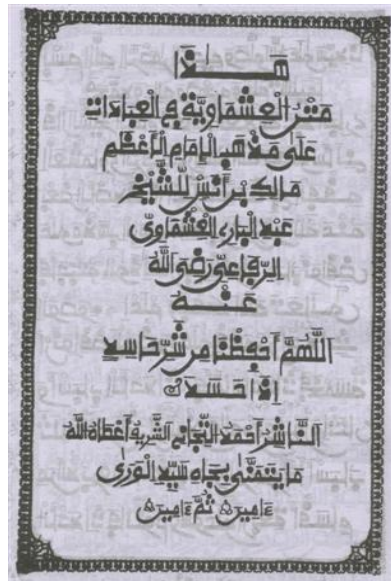 هَٰذَا
مَتْنُ الْعِشْمَاوِيَّةِ فِي الْعِبَادَاتِ
عَلَى مَذْهَبِ الْإِمَامِ الْأَعْظَمِ
مَالِكِ بْنِ أَنَسٍ لِلشَّيْخِ
عَبْدِ الْبَارِي الْعِشْمَاوِيِّ
الرِّفَاعِي رَضِيَ اللهُ
عَنْهُ
اللَّهُمَّ احْفِظْنَا مِن شَرِّ حَاسِدٍ
إِذَا حَسَدَ
النَّاشِرُ أَحْمَدُ التِّجَانِي الشَّرِيف أَعْطَاهُ اللهُ
مَا يَتَمَنَّى بِجَاهِ سَيِّدِ الْوَرَى
ءَامِين ثُمَّ ءَامِين